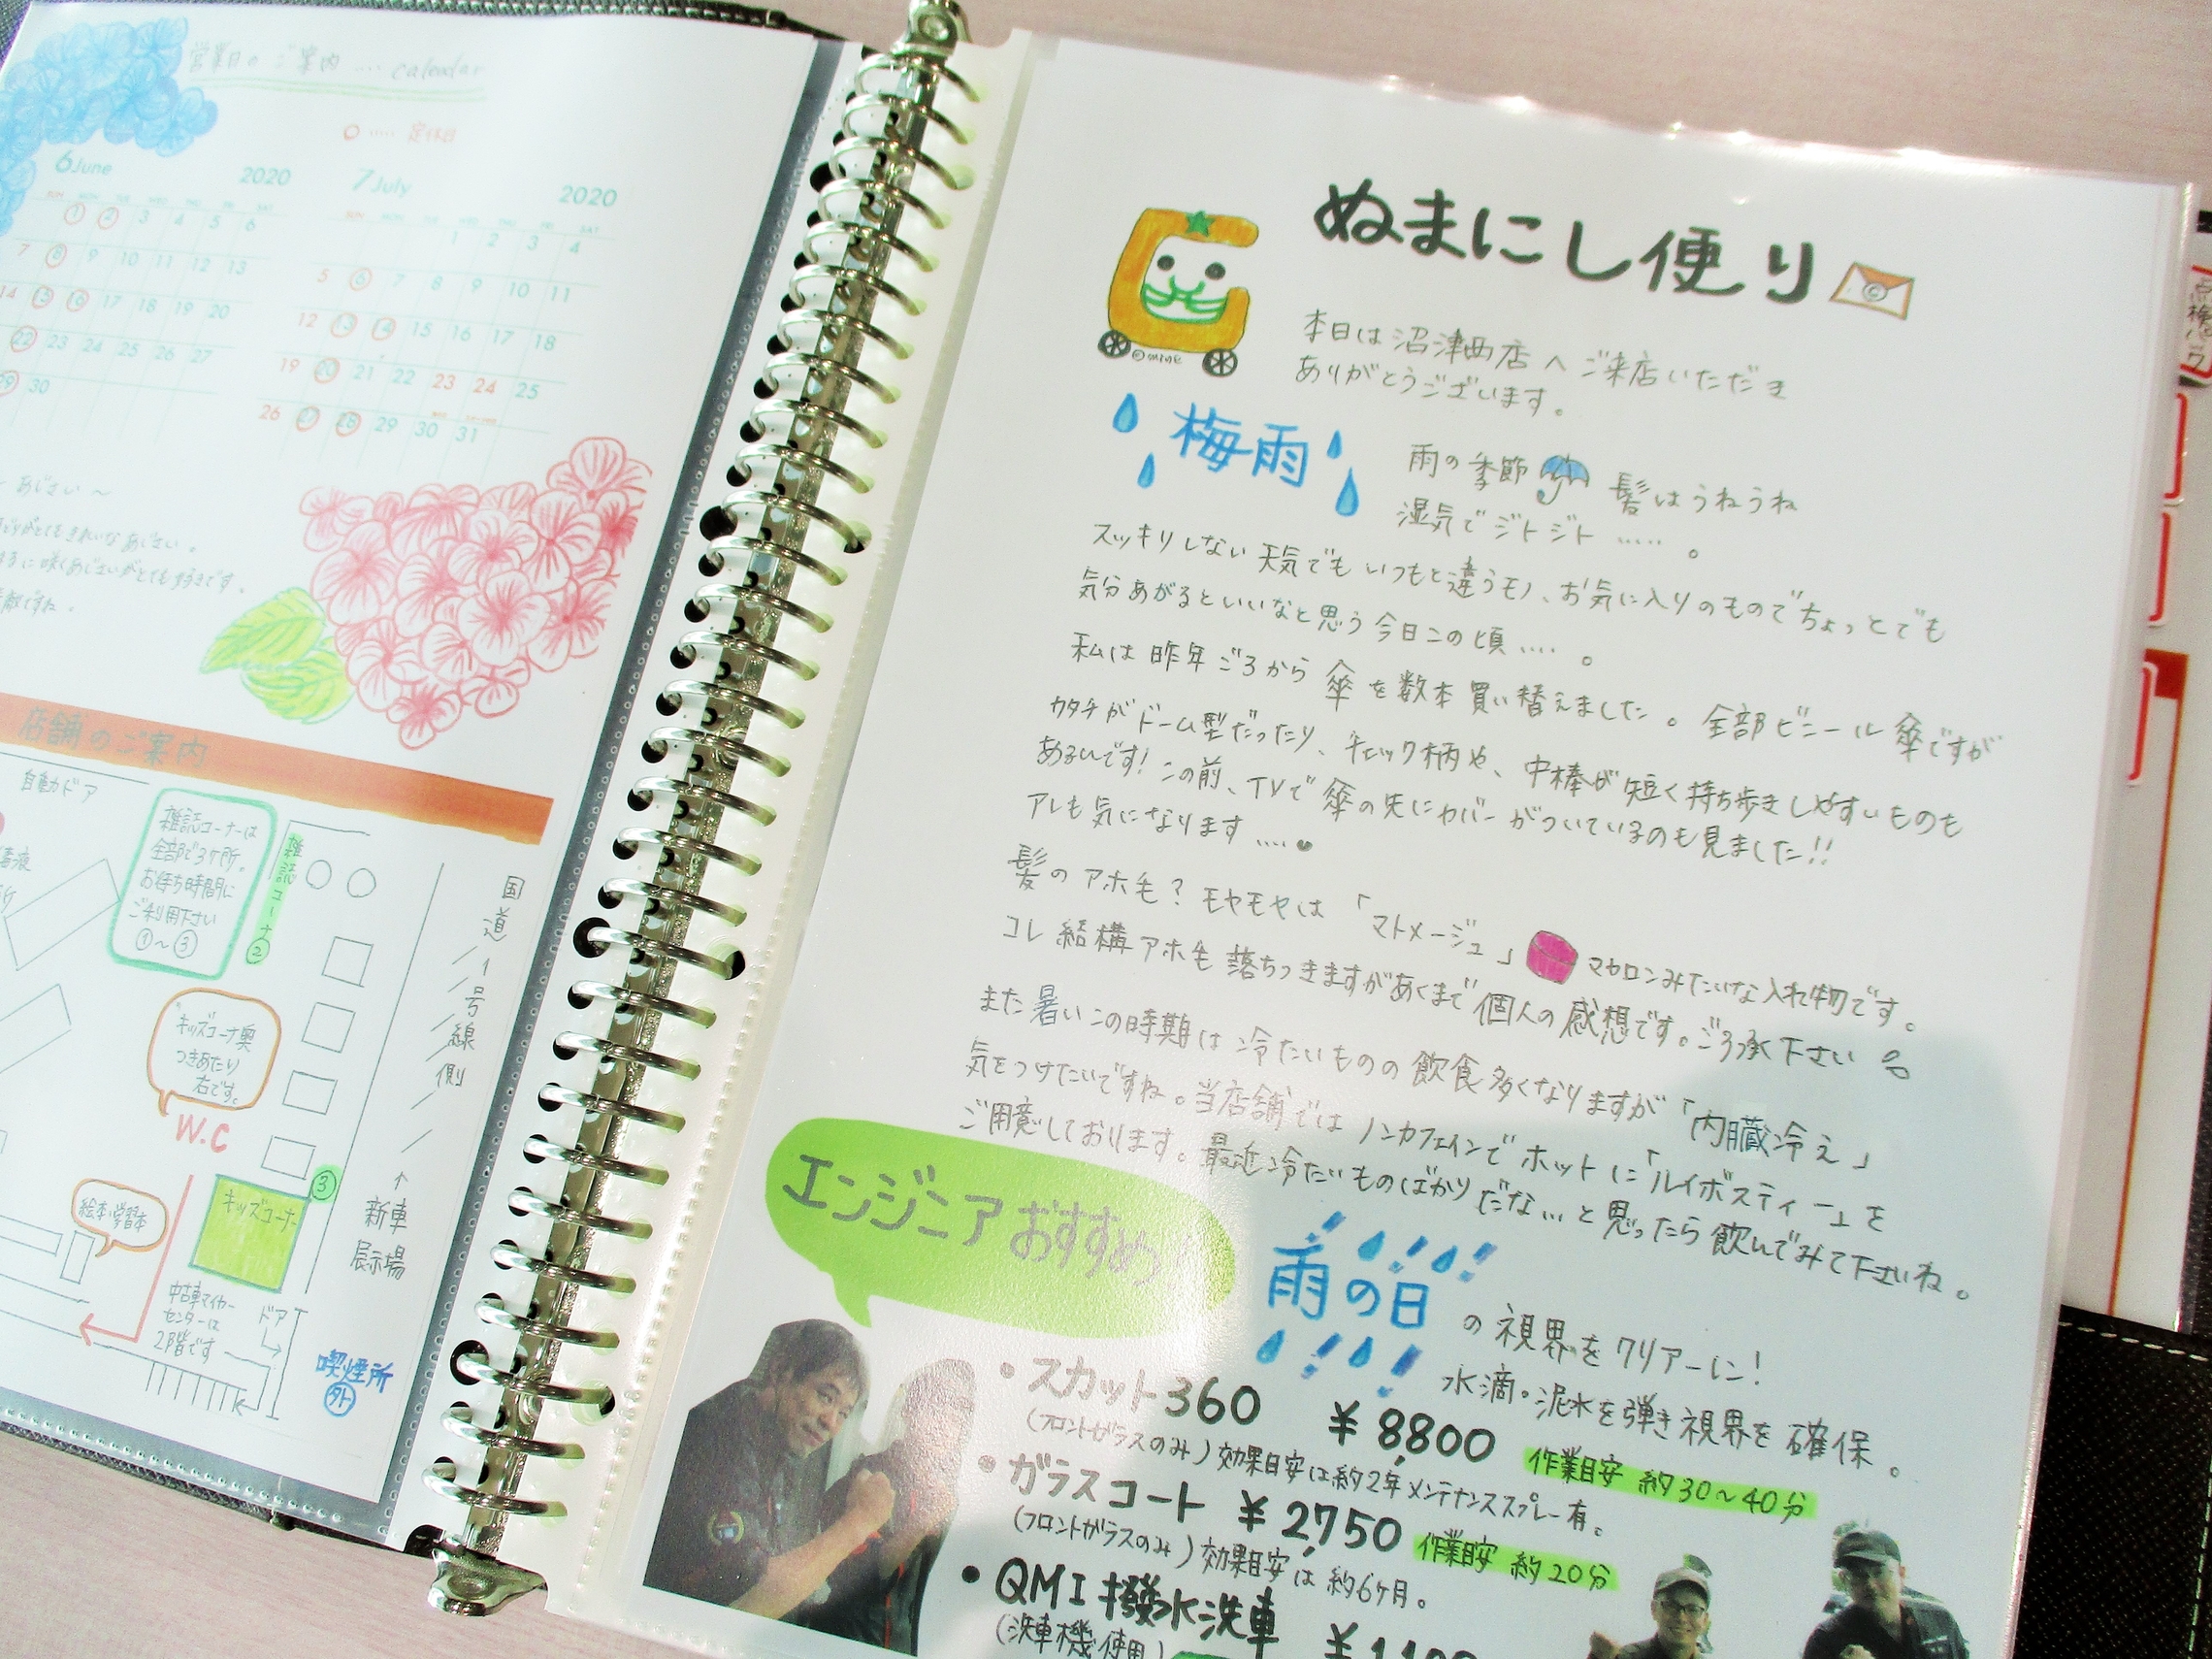 営業日のご案内 .... calendar
○ ..... 定休日
6 June 2020
SUN MON TUE WED THU FRI SAT
1 2 3 4 5 6
7 8 9 10 11 12 13
14 15 16 17 18 19 20
22 23 24 25 26 27
29 30
7 July 2020
SUN MON TUE WED THU FRI SAT
1 2 3 4
5 6 7 8 9 10 11
12 13 14 15 16 17 18
19 20 21 22 23 24 25
26 27 28 29 30 31
あじさい～
とてもきれいなあじさい。
に咲くあじさいがとても好きです。
敵ですね。
店舗のご案内
自動ドア
雑誌コーナーは
全部で3ヶ所。
お待ち時間に
ご利用下さい
①～③
雑誌コーナー②
国道1号線側
キッズコーナー奥
つきあたり
右です。
W.C
絵本・学習本
キッズコーナー
③
↑
新車
展示場
中古車マイカー
センターは
2階です
ドア
喫煙所
外
ぬまにし便り
本日は沼津西店へご来店いただき
ありがとうございます。
梅雨
雨の季節 髪はうねうね
湿気でジトジト .....。
スッキリしない天気でもいつもと違うモノ、お気に入りのものでちょっとでも
気分あがるといいなと思う今日この頃....。
私は昨年ごろから傘を数本買い替えました。全部ビニール傘ですが
カタチがドーム型だったり、チェック柄や、中棒が短く持ち歩きしやすいものも
あるんです!この前、TVで傘の先にカバーがついているのも見ました!!
アレも気になります....。
髪のアホ毛?モヤモヤは「マトメージュ」マカロンみたいな入れ物です。
コレ結構アホ毛落ちつきますがあくまで個人の感想です。ご了承下さい
また暑いこの時期は冷たいものの飲食多くなりますが「内臓冷え」
気をつけたいですね。当店舗ではノンカフェインでホットに「ルイボスティー」を
ご用意しております。最近冷たいものばかりだな...と思ったら飲んでみて下さいね。
エンジニアおすすめ!
雨の日の視界をクリアーに!
水滴・泥水を弾き視界を確保。
・スカット360 ¥8,800 作業目安 約30～40分
(フロントガラスのみ)効果目安は約2年メンテナンススプレー有。
・ガラスコート ¥2,750 作業目安 約20分
(フロントガラスのみ)効果目安は約6ヶ月。
・QMI撥水洗車
(洗車機使用)